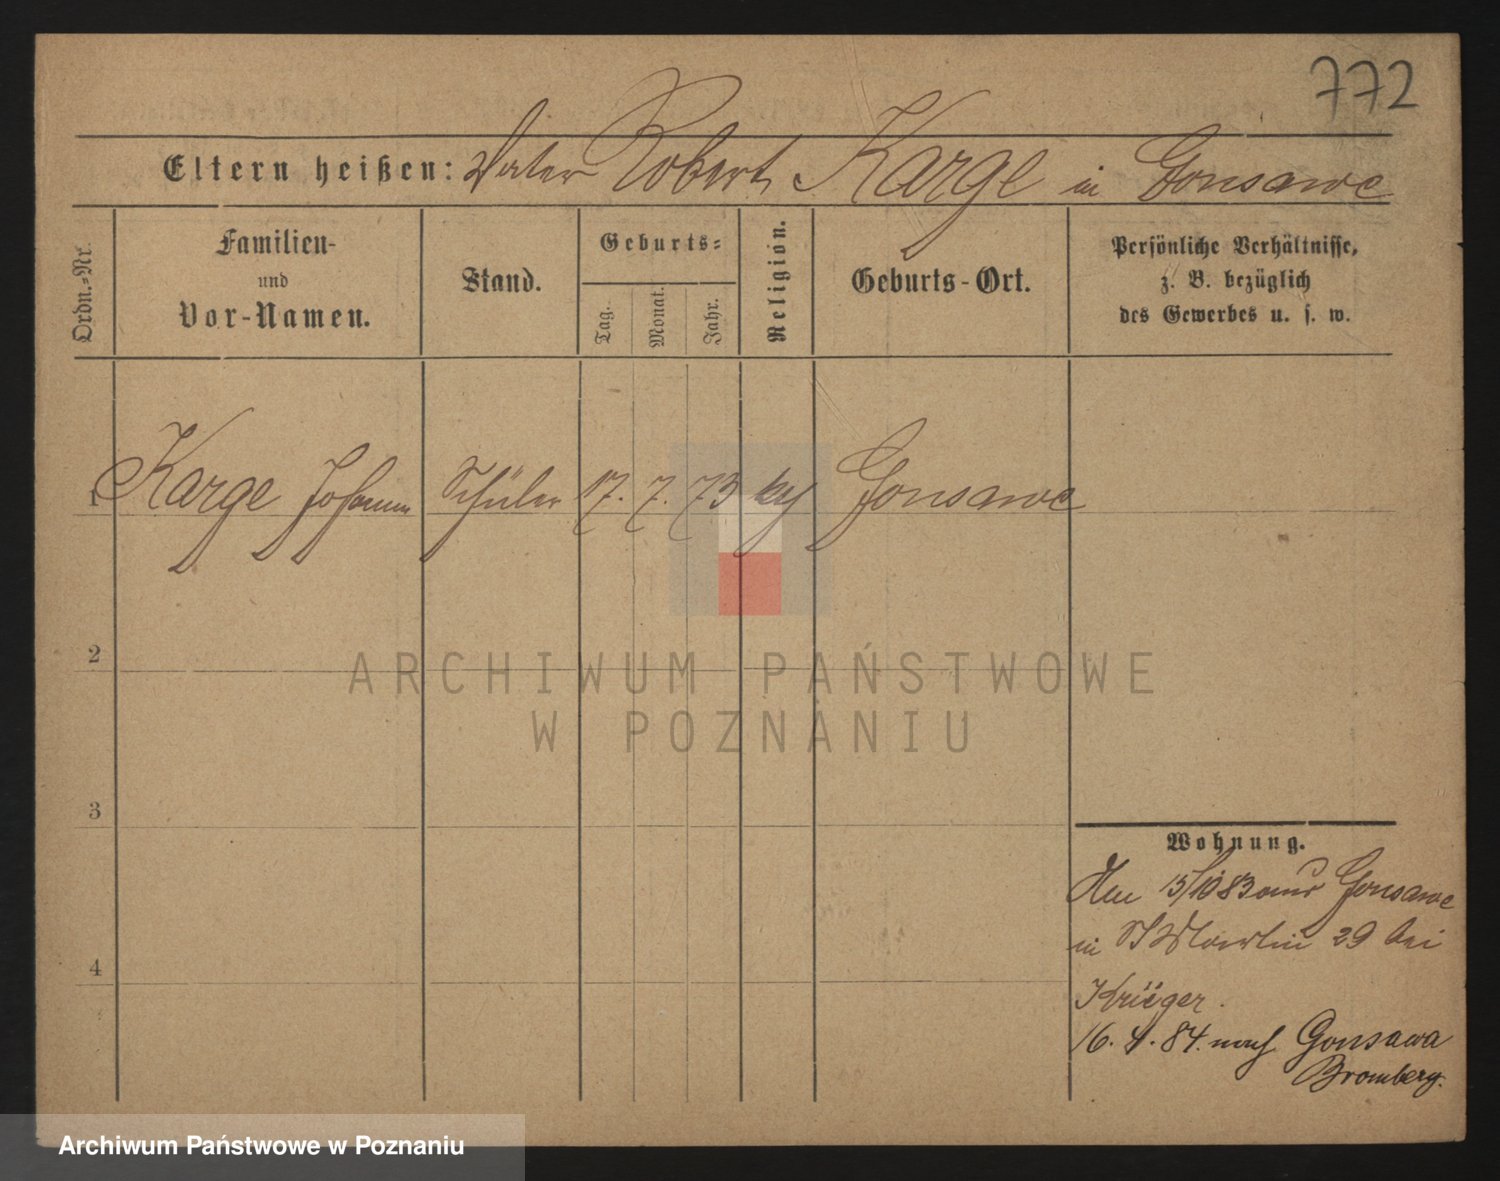 772
Eltern heißen: Vater Robert Karge in Gonsawe
Ordn.-Nr.
Familien-
und
Vor-Namen.
Stand.
Geburts-
Tag.
Monat.
Jahr.
Religion.
Geburts-Ort.
Persönliche Verhältnisse,
z. B. bezüglich
des Gewerbes u. s. w.
1 Karge Johann Schüler 17. 7. 73 kth Gonsawe
2
3
4
ARCHIWUM PAŃSTWOWE
W POZNANIU
Wohnung.
Den 15/10 83 aus Gonsawe
in St Martin 29 bei
Krüger.
16. 4. 84. nach Gonsawa
Bromberg.
Archiwum Państwowe w Poznaniu